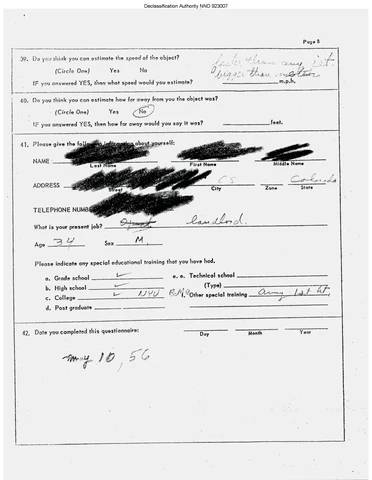 Declassification Authority NND 923007
Page 8
39. Do you think you can estimate the speed of the object?
(Circle One) Yes No
faster than any jet.
bigger than
IF you answered YES, then what speed would you estimate? m.p.h.
40. Do you think you can estimate how far away from you the object was?
(Circle One) Yes No
IF you answered YES, then how far away would you say it was? feet.
41. Please give the following information about yourself:
NAME
Last Name First Name Middle Name
ADDRESS CS Colorado
Street City Zone State
TELEPHONE NUMB
What is your present job? landlord.
Age 34 Sex M
Please indicate any special educational training that you have had.
a. Grade school ✓ e. e. Technical school
b. High school ✓ (Type)
c. College ✓ NYU f. Other special training Army 1st Lt.
d. Post graduate
42. Date you completed this questionnaire:
Day Month Year
May 10, 56